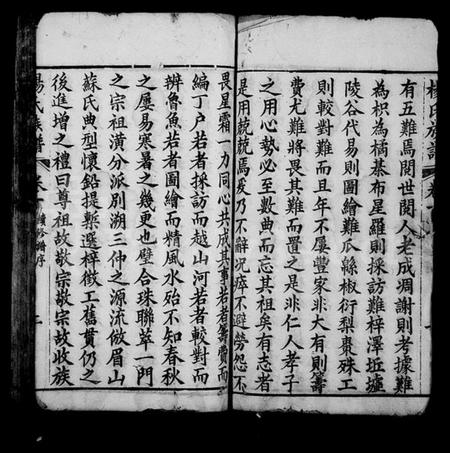 有五難焉閱世閱人老成凋謝則考據難
為枳為橘棊布星羅則採訪難梓澤坵墟
陵谷代易則圖繪難瓜緜椒衍梨棗殊工
則較對難而且年不屢豐家非大有則籌
費尤難將畏其難而置之是非仁人孝子
之用心勢必至數典而忘其祖矣有志者
是用兢兢焉矣乃不辭况瘁不避勞怨不
畏星霜一力同心共成其事若者籌費而
編丁戶若者採訪而越山河若者較對而
辨魯魚若者圖繪而精風水殆不知春秋
之屢易寒暑之幾更也璧合珠聯萃一門
之宗祖潢分派別溯三仲之源流倣眉山
蘇氏典型懷鉛提槧選梓徵工舊貫仍之
後進增之禮曰尊祖故敬宗敬宗故收族
楊氏族譜 卷一 續修譜序 二